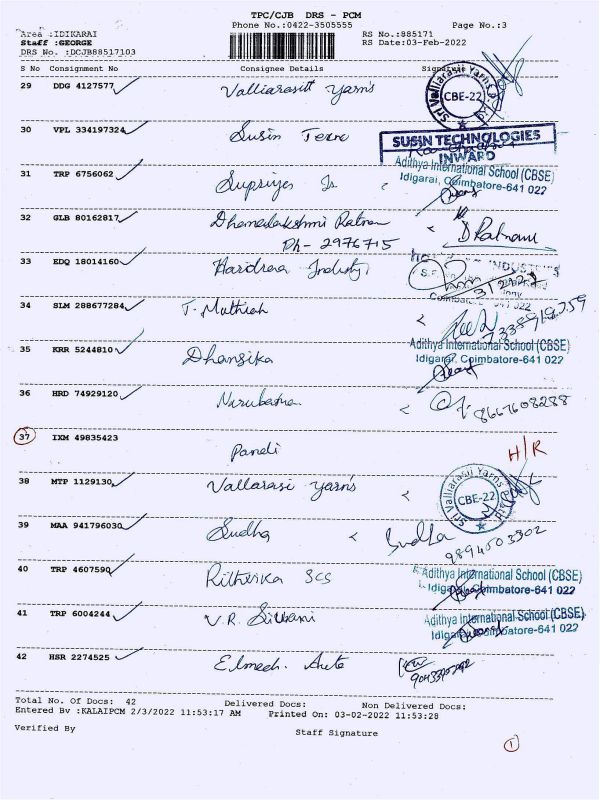 TPC/CJB DRS - PCM
Phone No.:0422-3505555 Page No.:3
Area :IDIKARAI RS No.:885171
Staff :GEORGE RS Date:03-Feb-2022
DRS No. :DCJB88517103
S No Consignment No Consignee Details Signature
29 DDG 4127577 Valliarasitt Yarn's
Sri Valliarasi Yarns CBE-22
30 VPL 334197324 Susin Texno
SUSIN TECHNOLOGIES
INWARD
31 TRP 6756062
Adithya International School (CBSE)
Idigarai, Coimbatore-641 022
32 GLB 80162817 Dhanalakshmi Ratnam
Ph- 2976715 DRatnam
33 EDQ 18014160 Haridraa Industry
INDUSTRIES
34 SLM 288677284 T. Mathiah
35 KRR 5244810 Dhansika
Adithya International School (CBSE)
Idigarai, Coimbatore-641 022
36 HRD 74929120 8667608288
37 IXM 49835423 Pandi H/R
38 MTP 1129130 Vallarasi Yarn's
Sri Valliarasi Yarns CBE-22
39 MAA 941796030 Sudha Sudha
9894503302
40 TRP 4607590 Rithvika SCS
Adithya International School (CBSE)
Idigarai, Coimbatore-641 022
41 TRP 6004244 V.R. Sivbani
Adithya International School (CBSE)
Idigarai, Coimbatore-641 022
42 HSR 2274525 Elmech. Auto
Total No. Of Docs: 42 Delivered Docs: Non Delivered Docs:
Entered By :KALAIPCM 2/3/2022 11:53:17 AM Printed On: 03-02-2022 11:53:28
Verified By Staff Signature
1